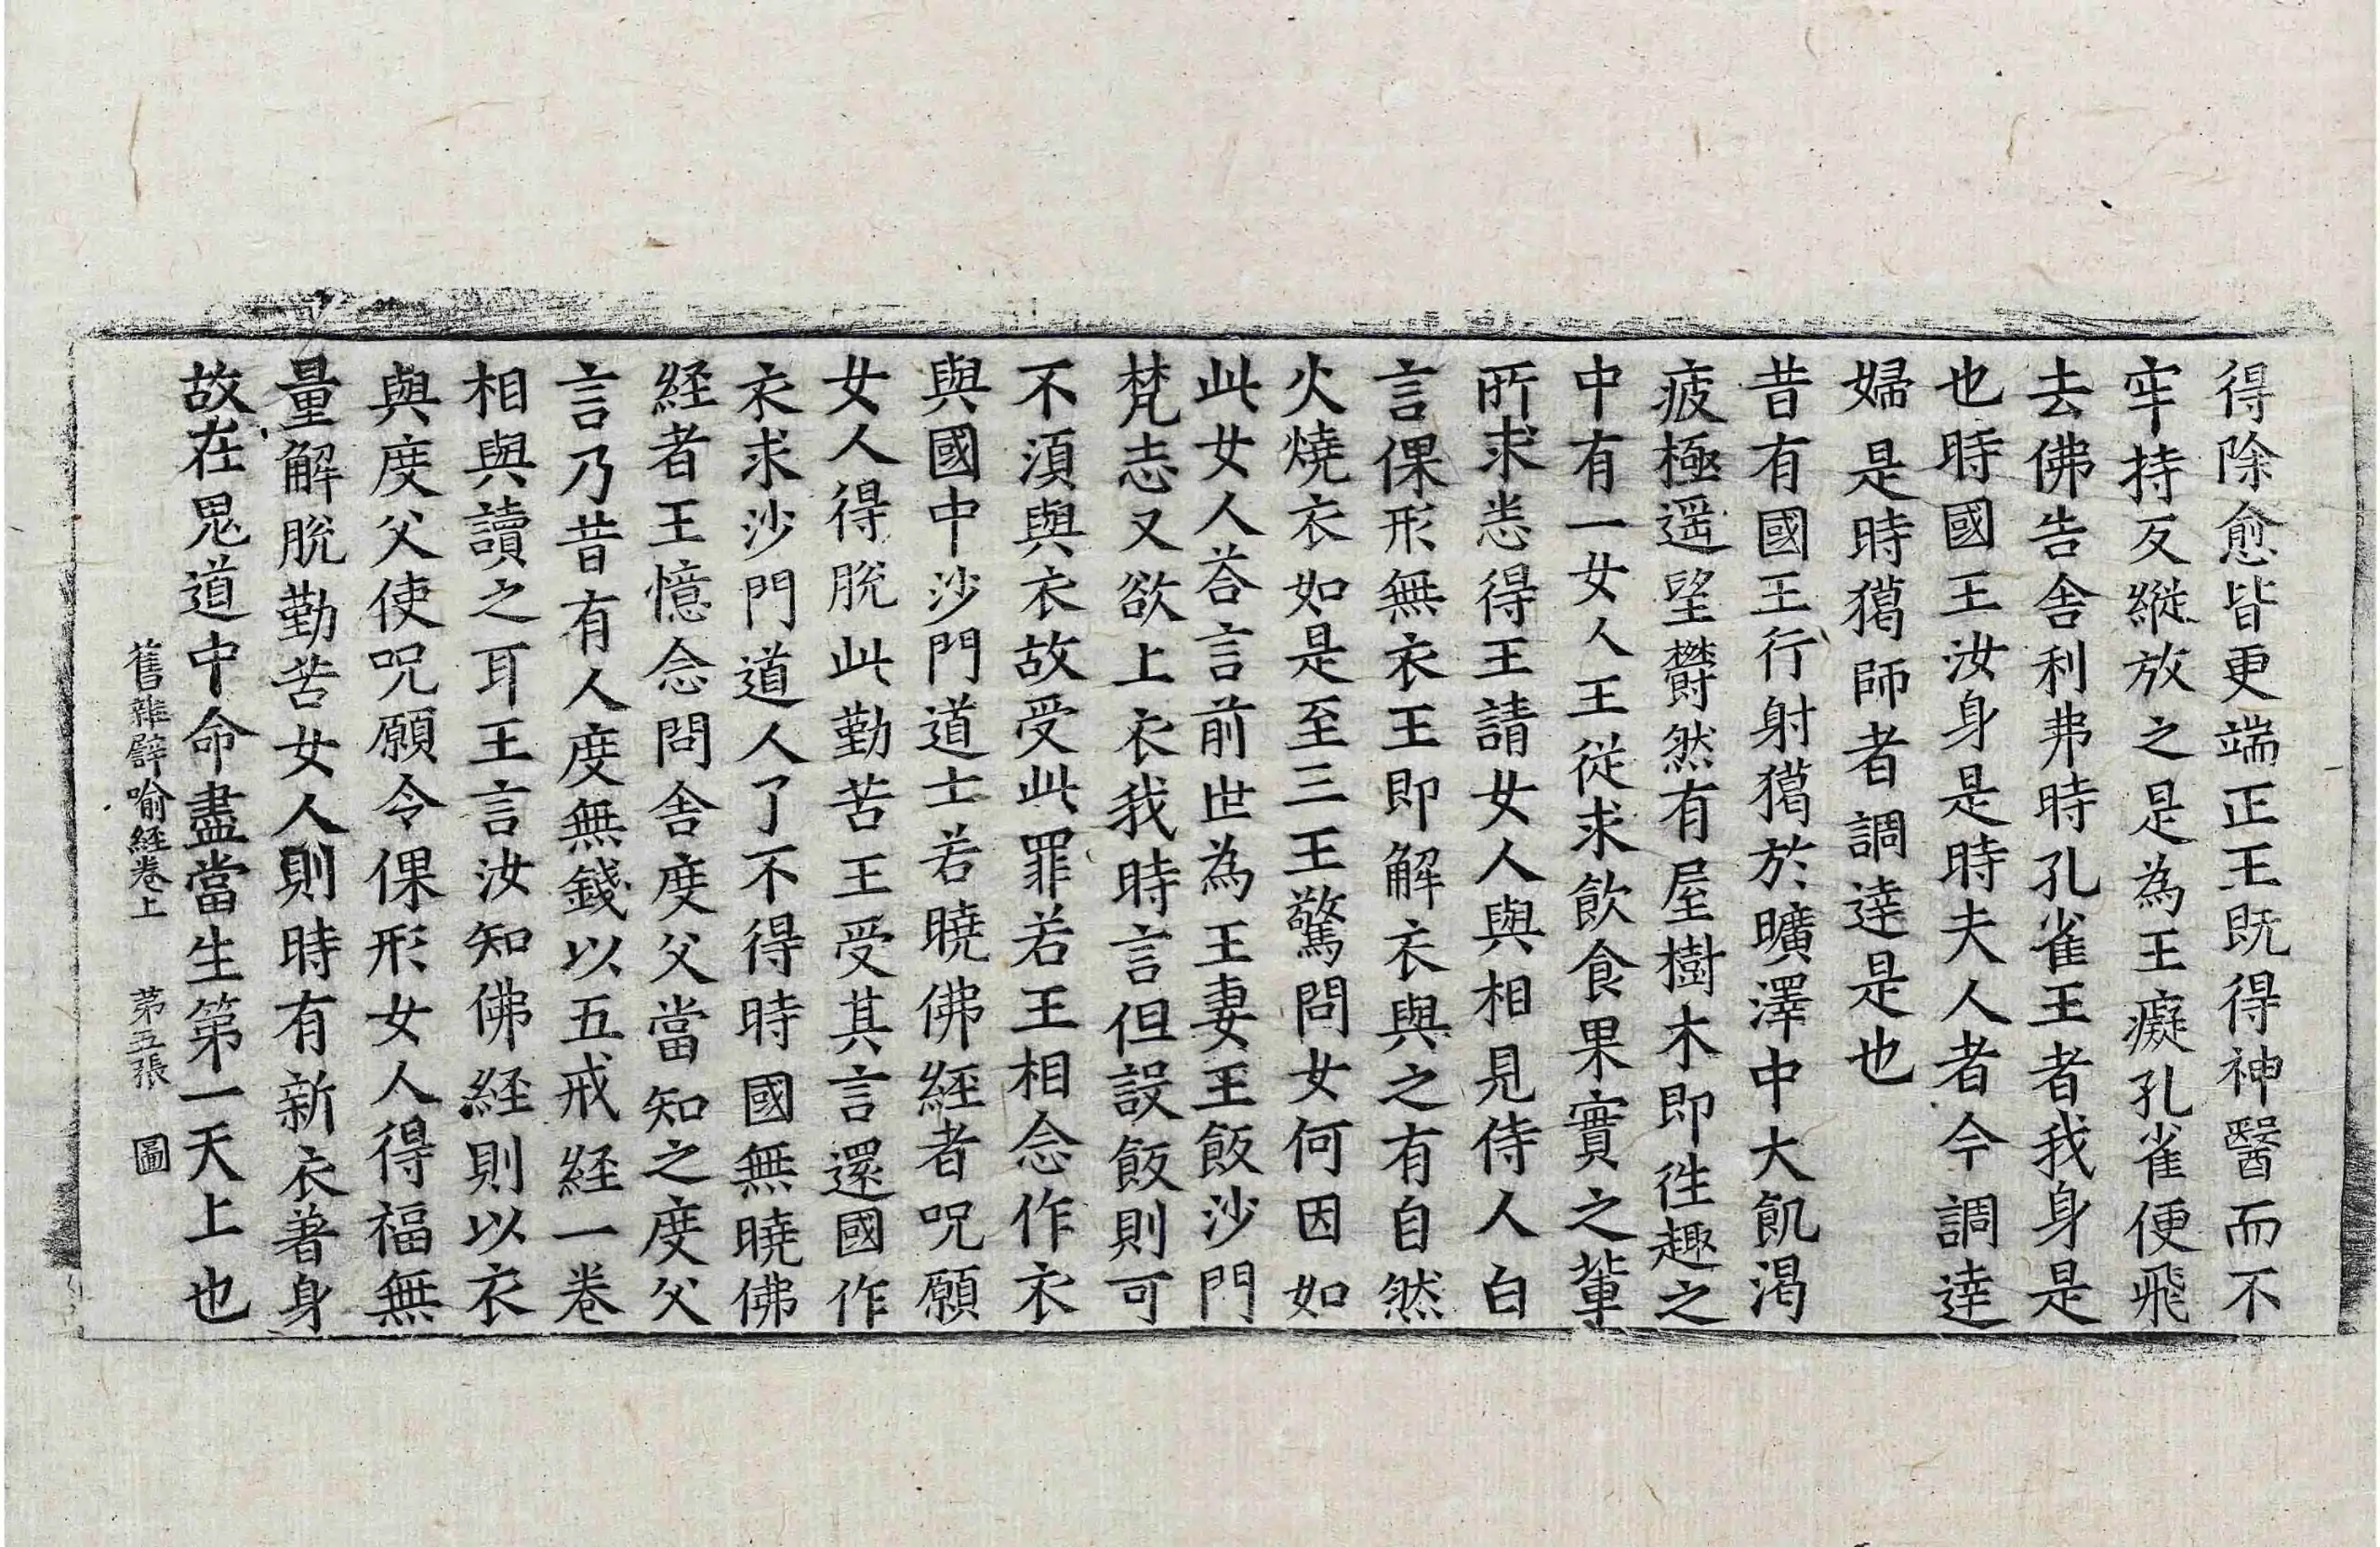 得除愈皆更端正王既得神醫而不
牢持反縱放之是為王癡孔雀便飛
去佛告舍利弗時孔雀王者我身是
也時國王汝身是時夫人者今調達
婦是時獦師者調達是也
昔有國王行射獦於曠澤中大飢渴
疲極遥望欝然有屋樹木即徃趣之
中有一女人王從求飲食果實之軰
所求悉得王請女人與相見侍人白
言倮形無衣王即解衣與之有自然
火燒衣如是至三王驚問女何因如
此女人荅言前世為王妻王飯沙門
梵志又欲上衣我時言但設飯則可
不湏與衣故受此罪若王相念作衣
與國中沙門道士若曉佛経者呪願
女人得脫此勤苦王受其言還國作
衣求沙門道人了不得時國無曉佛
経者王憶念問舍度父當知之度父
言乃昔有人度無錢以五戒経一卷
相與讀之耳王言汝知佛経則以衣
與度父使呪願令倮形女人得福無
量解脫勤苦女人則時有新衣著身
故在鬼道中命盡當生第一天上也
舊雜譬喻経卷上　苐五張　圖